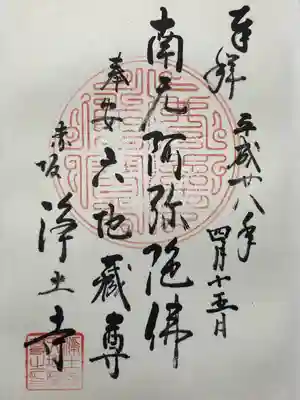 奉拝
平成廿八年
四月十五日
南无阿弥陀佛
奉安
六地蔵尊
赤坂
浄土寺